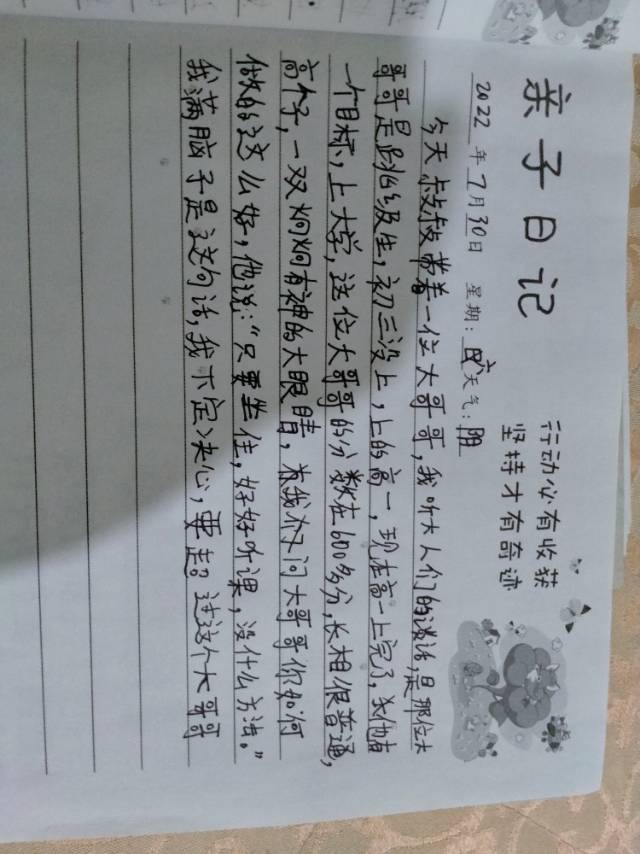 亲子日记
行动必有收获
坚持才有奇迹
2022年7月30日 星期: 天气:阴
今天叔叔带着一位大哥哥,我听大人们的谈话,是那位大
哥哥是跳级生,初三没上,上的高一,现在高一上完了,他有
一个目标,上大学,这位大哥哥的分数在600多分,长相很普通,
高个子,一双炯炯有神的大眼睛,我问大哥哥你如何
做的这么好,他说:“只要坐住,好好听课,没什么方法。”
我满脑子是这句话,我下定决心,要走。过这个大哥哥